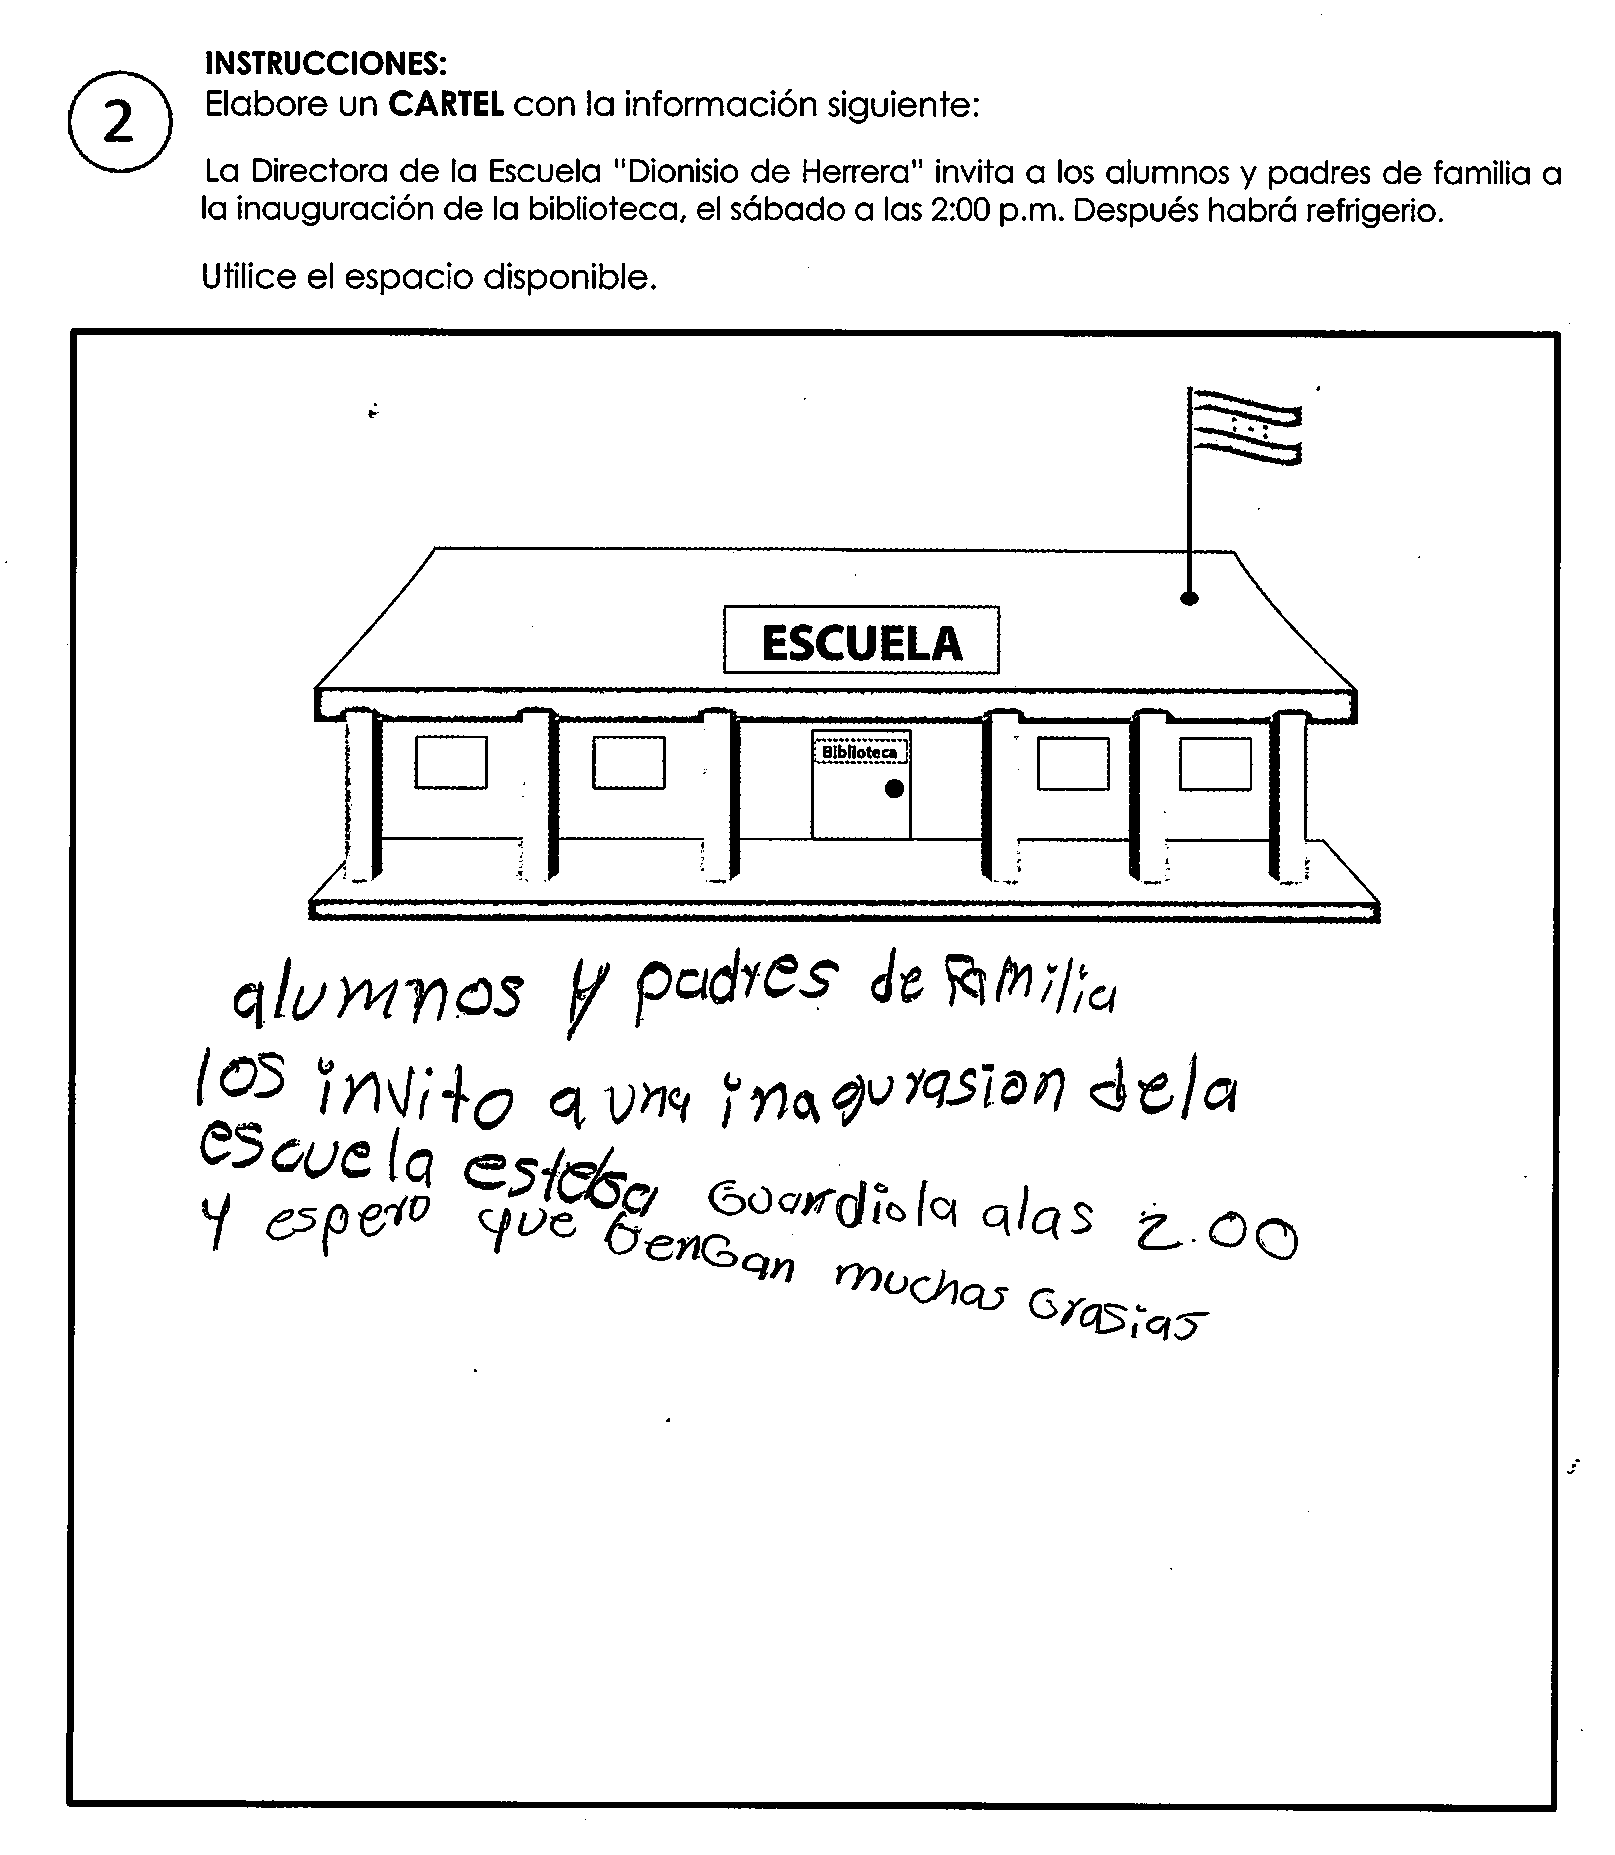 INSTRUCCIONES:
2
Elabore un CARTEL con la información siguiente:
La Directora de la Escuela "Dionisio de Herrera" invita a los alumnos y padres de familia a
la inauguración de la biblioteca, el sábado a las 2:00 p.m. Después habrá refrigerio.
Utilice el espacio disponible.
ESCUELA
Biblioteca
alumnos y padres de Familia
los invito a una inagurasion dela
escuela esteba Guardiola alas 2.00
y espero que bengan muchas Grasias